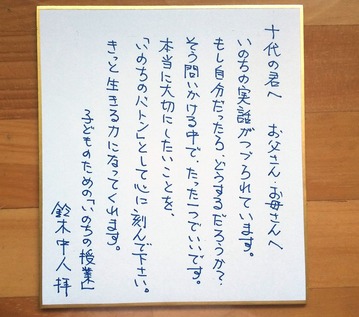 十代の君へ　お父さん お母さんへ
いのちの実話がつづられています。
もし自分だったら、どうするだろうか?
そう問いかける中で、たった一つでいいです。
本当に大切にしたいことを、
「いのちのバトン」として心に刻んで下さい。
きっと生きる力になってくれます。
子どものための「いのちの授業」
鈴木中人 拝